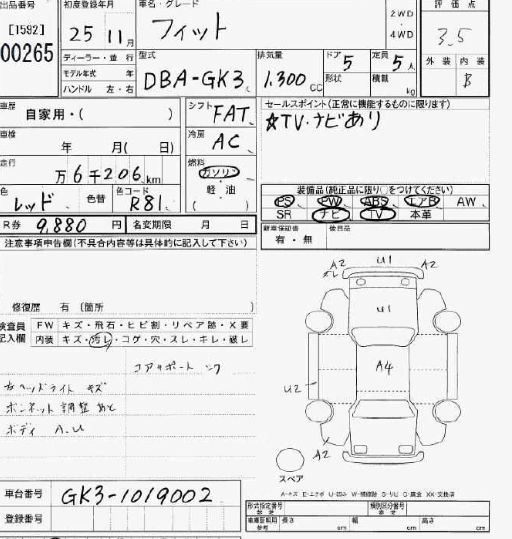 出品番号 初度登録年月 車名・グレード 評価点
[1592] 25年 11月 フィット 2WD・4WD 3.5
00265 ディーラー・並行 外装 内装
モデル年式 年 型式 排気量 ドア 定員 B
ハンドル 左・右 DBA-GK3 1,300cc 5 5人
形状 積載 kg
車歴 シフト セールスポイント(正常に機能するものに限ります)
自家用・( ) FAT ☆TV・ナビあり
車検 冷房
年 月( 日) AC
走行 燃料
万6千206km ガソリン
色 色替 色コード 軽・油
レッド R81 ( )
装備品(純正品に限り○をつけてください)
PS PW ABS エアB AW
SR ナビ TV 本革
R券 9,880円 名変期限 月 日
新車保証書 後日品
有・無
注意事項申告欄(不具合内容等は具体的に記入して下さい)
修復歴 有〔箇所 〕
検査員記入欄 FW キズ・飛石・ヒビ割・リペア跡・X要
内装 キズ・汚レ・コゲ・穴・スレ・キレ・破レ
コアサポート
ヘッドライト キズ
ボンネット 調整あと
ボディ A.U
A2 U1 A2
U1
A4
U2
A2
スペア
車台番号 GK3-1019002
登録番号
型式指定番号 類別区分番号
長さ cm 幅 cm 高さ cm